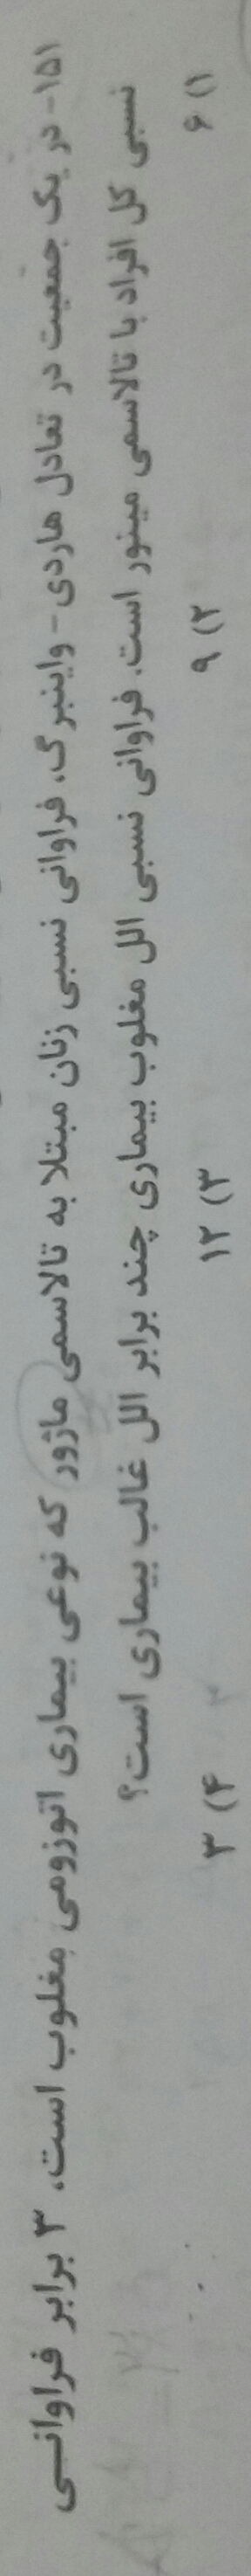 ۱۵۱- در یک جمعیت در تعادل هاردی - واینبرگ، فراوانی نسبی زنان مبتلا به تالاسمی ماژور که نوعی بیماری اتوزومی مغلوب است، ۳ برابر فراوانی
نسبی کل افراد با تالاسمی مینور است. فراوانی نسبی الل مغلوب بیماری چند برابر الل غالب بیماری است؟
۱) ۶ ۲) ۹ ۳) ۱۲ ۴) ۳